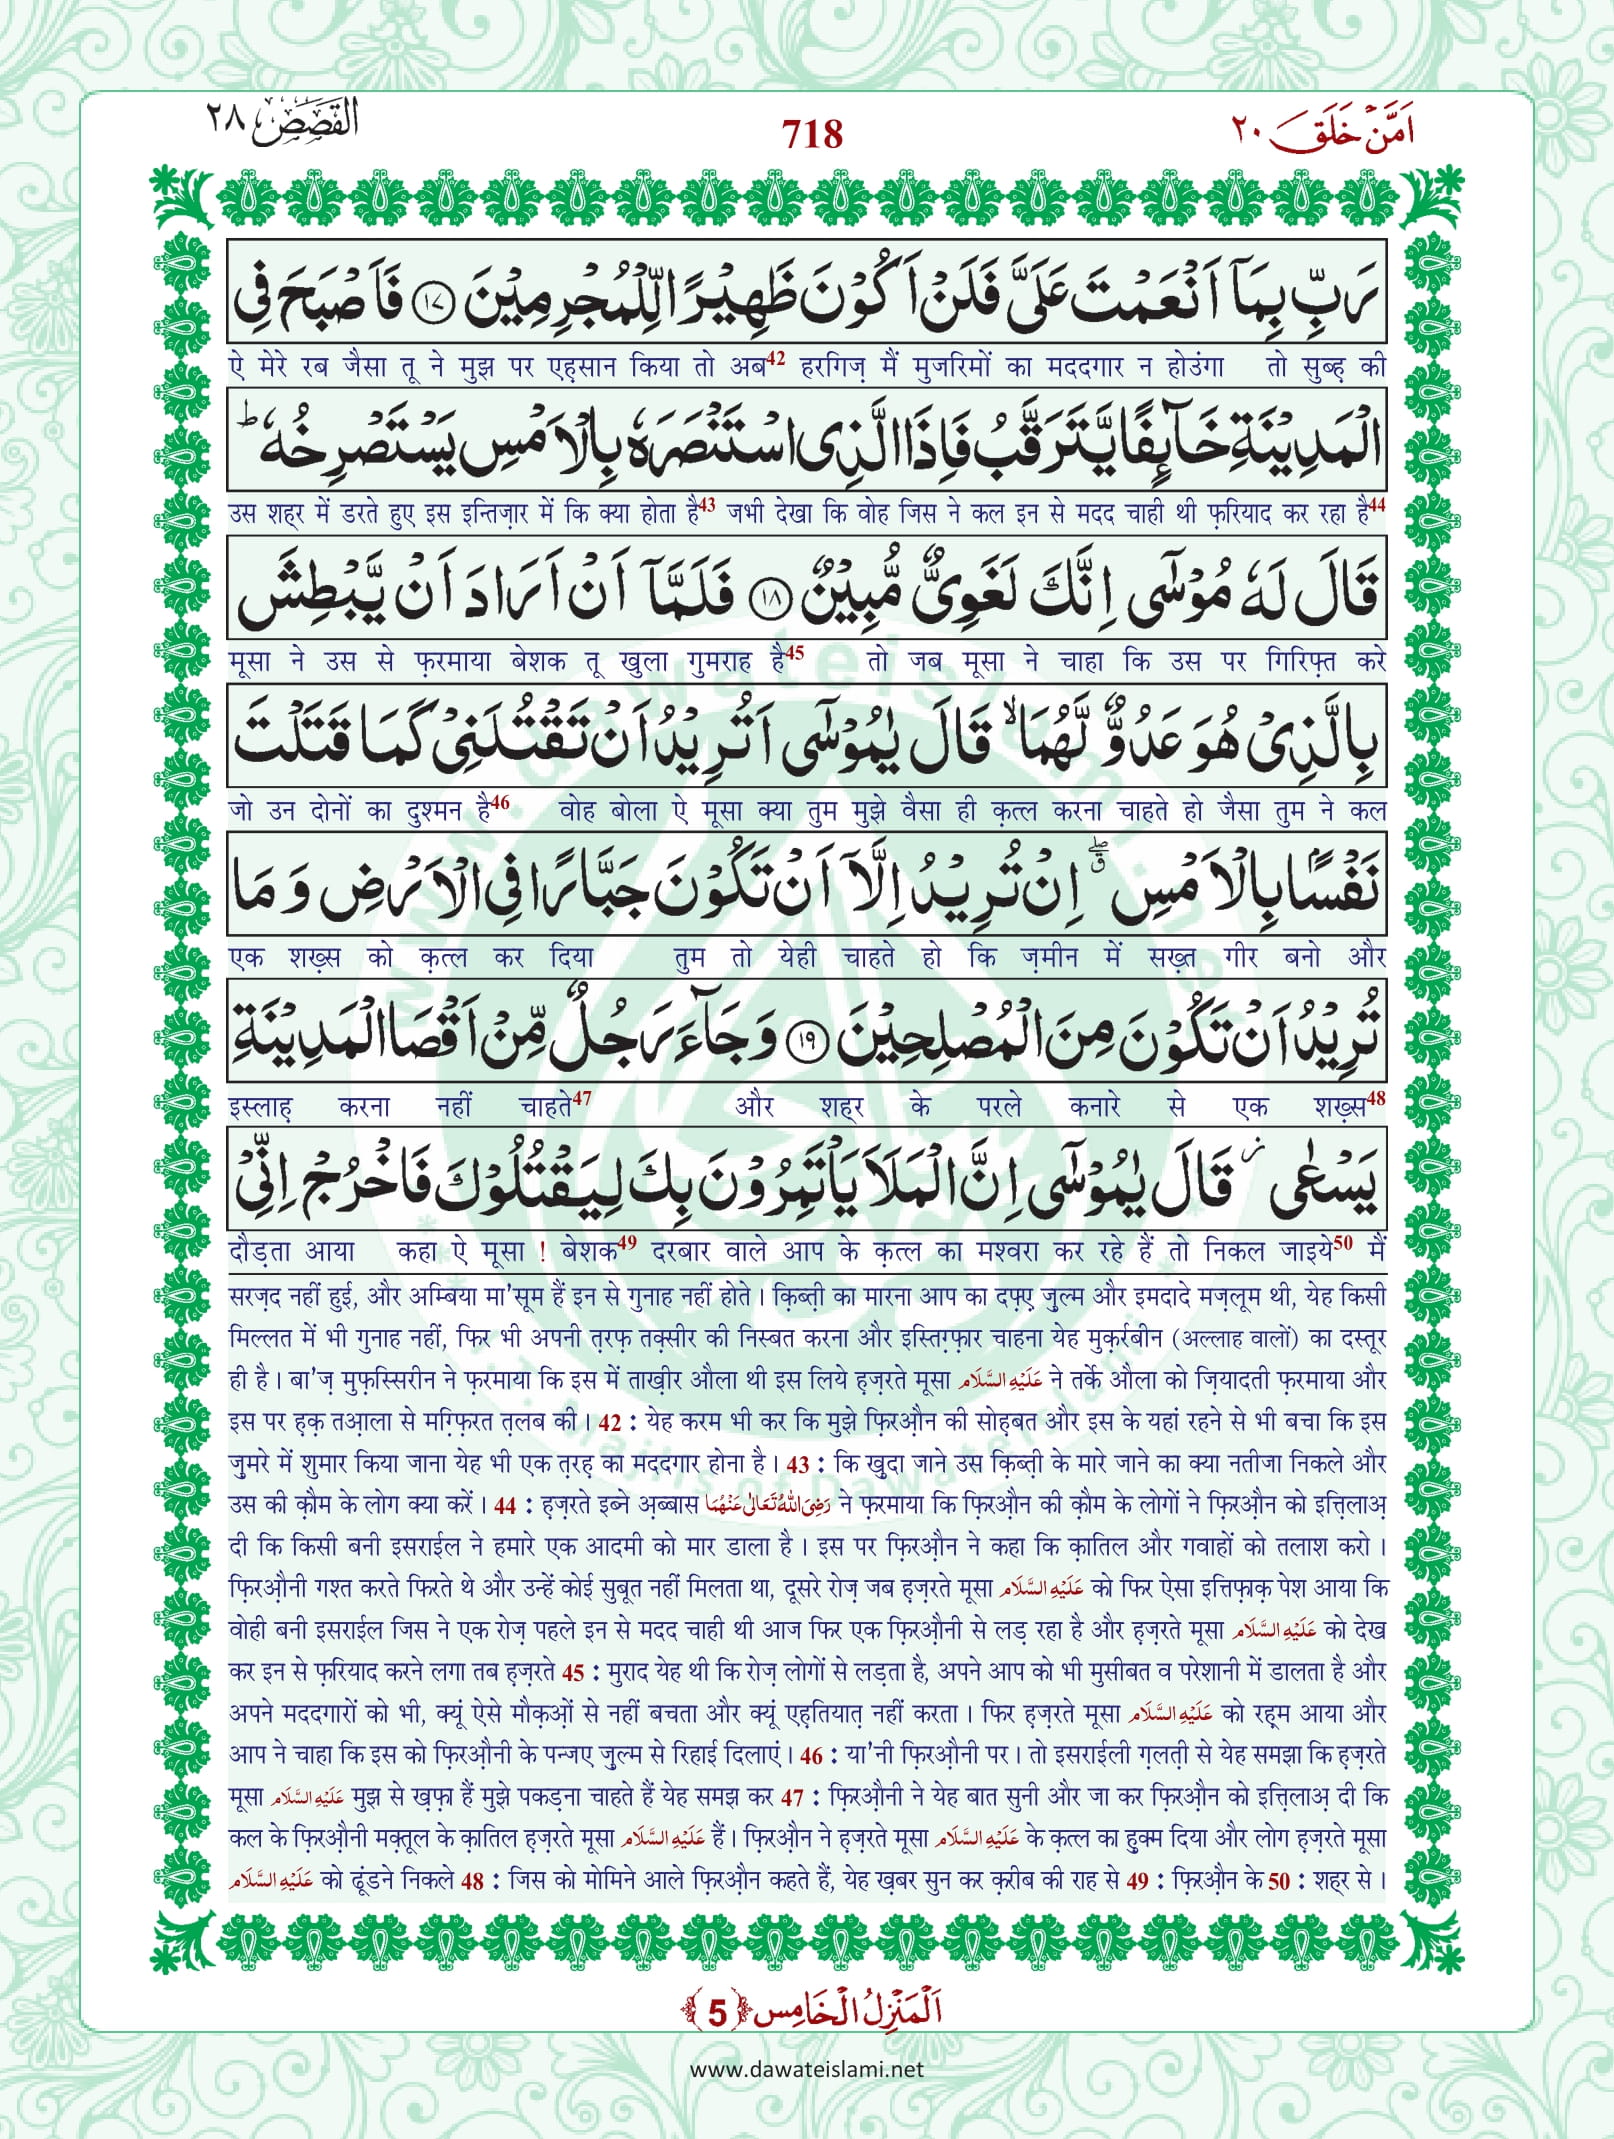 اَمَّنْ خَلَقَ ٢٠
718
القَصَص ٢٨
رَبِّ بِمَاۤ اَنْعَمْتَ عَلَیَّ فَلَنْ اَكُوْنَ ظَهِیْرًا لِّلْمُجْرِمِیْنَ ﴿۱۷﴾ فَاَصْبَحَ فِی
ऐ मेरे रब जैसा तू ने मुझ पर एह़सान किया तो अब42 हरगिज़ मैं मुजरिमों का मददगार न होउंगा तो सुब्ह़ की
الْمَدِیْنَةِ خَآىٕفًا یَّتَرَقَّبُ فَاِذَا الَّذِی اسْتَنْصَرَهٗ بِالْاَمْسِ یَسْتَصْرِخُهٗ ؕ
उस शहर में डरते हुए इस इन्तिज़ार में कि क्या होता है43 जभी देखा कि वोह जिस ने कल इन से मदद चाही थी फ़रियाद कर रहा है44
قَالَ لَهٗ مُوْسٰۤی اِنَّكَ لَغَوِیٌّ مُّبِیْنٌ ﴿۱۸﴾ فَلَمَّاۤ اَنْ اَرَادَ اَنْ یَّبْطِشَ
मूसा ने उस से फ़रमाया बेशक तू खुला गुमराह है45 तो जब मूसा ने चाहा कि उस पर गिरिफ़्त करे
بِالَّذِیْ هُوَ عَدُوٌّ لَّهُمَا ۙ قَالَ یٰمُوْسٰۤی اَتُرِیْدُ اَنْ تَقْتُلَنِیْ كَمَا قَتَلْتَ
जो उन दोनों का दुश्मन है46 वोह बोला ऐ मूसा क्या तुम मुझे वैसा ही क़त्ल करना चाहते हो जैसा तुम ने कल
نَفْسًۢا بِالْاَمْسِ ۖق اِنْ تُرِیْدُ اِلَّاۤ اَنْ تَكُوْنَ جَبَّارًا فِی الْاَرْضِ وَ مَا
एक शख़्स को क़त्ल कर दिया तुम तो येही चाहते हो कि ज़मीन में सख़्त गीर बनो और
تُرِیْدُ اَنْ تَكُوْنَ مِنَ الْمُصْلِحِیْنَ ﴿۱۹﴾ وَ جَآءَ رَجُلٌ مِّنْ اَقْصَا الْمَدِیْنَةِ
इस्लाह़ करना नहीं चाहते47 और शहर के परले कनारे से एक शख़्स48
یَسْعٰی ؗ قَالَ یٰمُوْسٰۤی اِنَّ الْمَلَاَ یَاْتَمِرُوْنَ بِكَ لِیَقْتُلُوْكَ فَاخْرُجْ اِنِّیْ
दौड़ता आया कहा ऐ मूसा ! बेशक49 दरबार वाले आप के क़त्ल का मश्वरा कर रहे हैं तो निकल जाइये50 मैं
सरज़द नहीं हुई, और अम्बिया मा'सूम हैं इन से गुनाह नहीं होते । क़िब्त़ी का मारना आप का दफ़्ए ज़ुल्म और इमदादे मज़लूम थी, येह किसी
मिल्लत में भी गुनाह नहीं, फिर भी अपनी त़रफ़ तक़्सीर की निस्बत करना और इस्तिग़्फ़ार चाहना येह मुक़र्रबीन (अल्लाह वालों) का दस्तूर
ही है । बा'ज़ मुफ़स्सिरीन ने फ़रमाया कि इस में ताख़ीर औला थी इस लिये ह़ज़रते मूसा عَلَیْہِ السَّلَام ने तर्के औला को ज़ियादती फ़रमाया और
इस पर ह़क़ तआ़ला से मग़्फ़िरत त़लब की । 42 : येह करम भी कर कि मुझे फ़िरऔ़न की सोह़बत और इस के यहां रहने से भी बचा कि इस
ज़ुमरे में शुमार किया जाना येह भी एक त़रह़ का मददगार होना है । 43 : कि ख़ुदा जाने उस क़िब्त़ी के मारे जाने का क्या नतीजा निकले और
उस की क़ौम के लोग क्या करें । 44 : ह़ज़रते इब्ने अ़ब्बास رَضِیَ اللہُ تَعَالٰی عَنْہُمَا ने फ़रमाया कि फ़िरऔ़न की क़ौम के लोगों ने फ़िरऔ़न को इत्तिलाअ़
दी कि किसी बनी इसराईल ने हमारे एक आदमी को मार डाला है । इस पर फ़िरऔ़न ने कहा कि क़ातिल और गवाहों को तलाश करो ।
फ़िरऔ़नी गश्त करते फिरते थे और उन्हें कोई सुबूत नहीं मिलता था, दूसरे रोज़ जब ह़ज़रते मूसा عَلَیْہِ السَّلَام को फिर ऐसा इत्तिफ़ाक़ पेश आया कि
वोही बनी इसराईल जिस ने एक रोज़ पहले इन से मदद चाही थी आज फिर एक फ़िरऔ़नी से लड़ रहा है और ह़ज़रते मूसा عَلَیْہِ السَّلَام को देख
कर इन से फ़रियाद करने लगा तब ह़ज़रते 45 : मुराद येह थी कि रोज़ लोगों से लड़ता है, अपने आप को भी मुसीबत व परेशानी में डालता है और
अपने मददगारों को भी, क्यूं ऐसे मौक़ओ़ं से नहीं बचता और क्यूं एह़तियात़ नहीं करता । फिर ह़ज़रते मूसा عَلَیْہِ السَّلَام को रह़्म आया और
आप ने चाहा कि इस को फ़िरऔ़नी के पन्जए ज़ुल्म से रिहाई दिलाएं । 46 : या'नी फ़िरऔ़नी पर । तो इसराईली ग़लत़ी से येह समझा कि ह़ज़रते
मूसा عَلَیْہِ السَّلَام मुझ से ख़फ़ा हैं मुझे पकड़ना चाहते हैं येह समझ कर 47 : फ़िरऔ़नी ने येह बात सुनी और जा कर फ़िरऔ़न को इत्तिलाअ़ दी कि
कल के फ़िरऔ़नी मक़्तूल के क़ातिल ह़ज़रते मूसा عَلَیْہِ السَّلَام हैं । फ़िरऔ़न ने ह़ज़रते मूसा عَلَیْہِ السَّلَام के क़त्ल का हुक्म दिया और लोग ह़ज़रते मूसा
عَلَیْہِ السَّلَام को ढूंडने निकले 48 : जिस को मोमिने आले फ़िरऔ़न कहते हैं, येह ख़बर सुन कर क़रीब की राह से 49 : फ़िरऔ़न के 50 : शहर से ।
اَلْمَنْزِلُ الْخَامِس ﴿5﴾
www.dawateislami.net